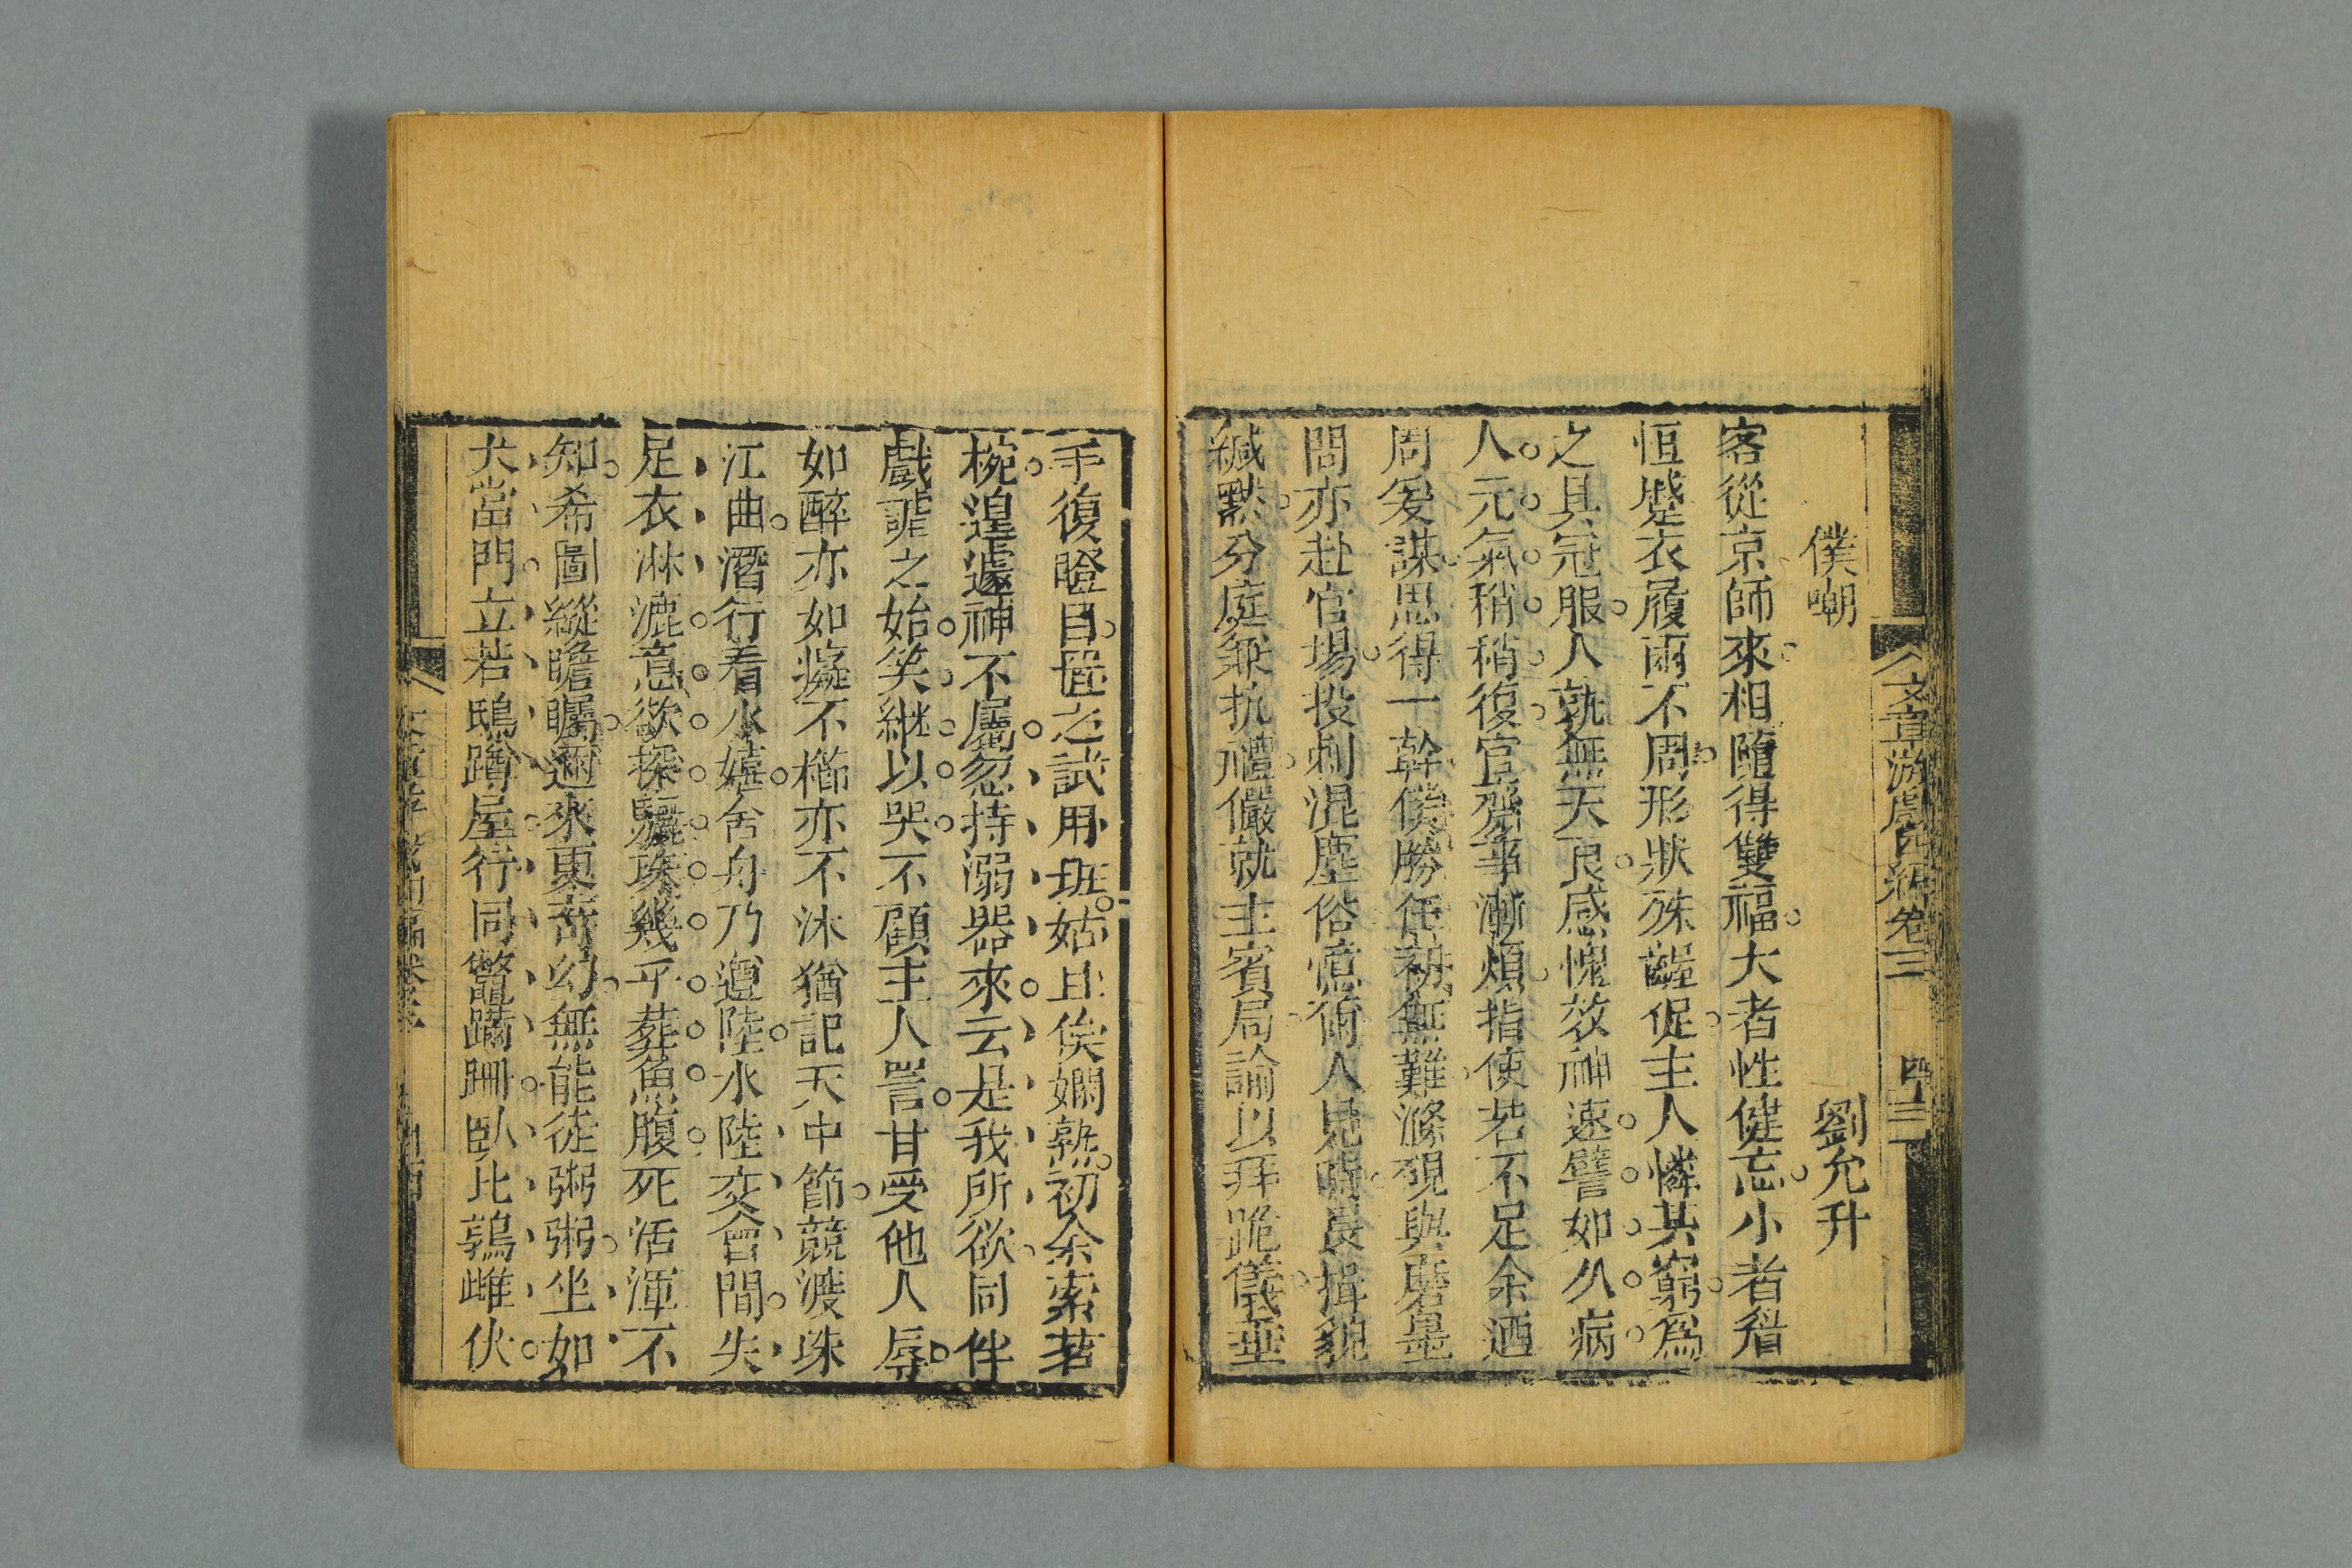 文章游戲四編卷三 四十三
僕嘲 劉允升
客從京師來相隨得雙福大者性健忘小者
恒蹙衣履兩不周形狀殊齷齪主人憐其窮爲
之具冠服人孰無天良感愧效神速譬如久病
人元氣稍稍復官齋事漸煩指使若不足余迺
周爰謀思得一幹僕勝任初無難滌硯與磨墨
間亦赴官場投刺混塵俗憶爾人見時長揖貌
緘默分庭兼抗禮儼就主賓局諭以拜跪儀垂
手復瞪目毋之試用班姑且俟嫻熟初余索茗
椀遑遽神不屬忽持溺器來云是我所欲同伴
戲謔之始笑繼以哭不顧主人詈甘受他人辱
如醉亦如癡不櫛亦不沐猶記天中節競渡珠
江曲潛行看水嬉舍舟乃遵陸水陸交會間失
足衣淋漉意欲探驪珠幾乎葬魚腹死活渾不
知希圖縱瞻矚邇來更奇幻無能徒粥粥坐如
犬當門立若鴟蹲屋行同鼈蹣跚臥比鶉雌伏